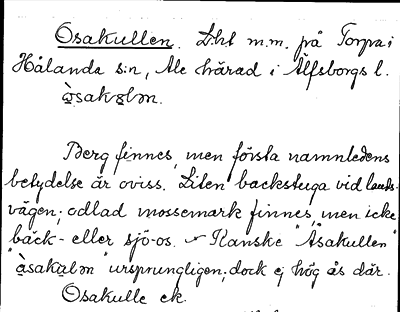 Osakullen. Lht m.m. på Torpa i
Hålanda s:n, Ale härad i Älfsborgs l.
òsakɷlən.
Berg finnes, men första namnledens
betydelse är oviss. Liten backstuga vid lands-
vägen; odlad mossemark finnes, men icke
bäck- eller sjö-os. Kanske "Åsakullen"
"åsakɷlən" ursprungligen, dock ej hög ås där.
Osakulle ek.